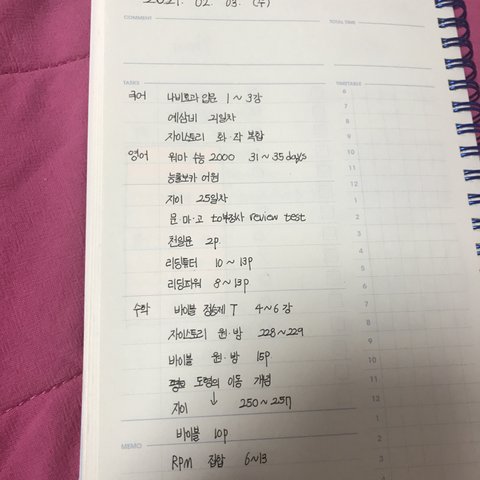 2021. 02. 03. (수)
COMMENT
TOTAL TIME
TASKS
TIMETABLE
국어 나비효과 입문 1 ~ 3강
예삼비 21일차
자이스토리 화·작 복합
영어 워마 수능 2000 31 ~ 35 days
능률보카 어원
자이 25일차
문·마·고 to부정사 review test
천일문 2p.
리딩튜터 10 ~ 13p
리딩파워 8 ~ 13p
수학 바이블 정승제 T 4 ~ 6 강
자이스토리 원·방 228 ~ 229
바이블 원·방 15p
도형의 이동 개념
↓
자이 250 ~ 257
바이블 10p
MEMO
RPM 집합 6~13
6
7
8
9
10
11
12
1
2
3
4
5
6
7
8
9
10
11
12
1
2
3
4